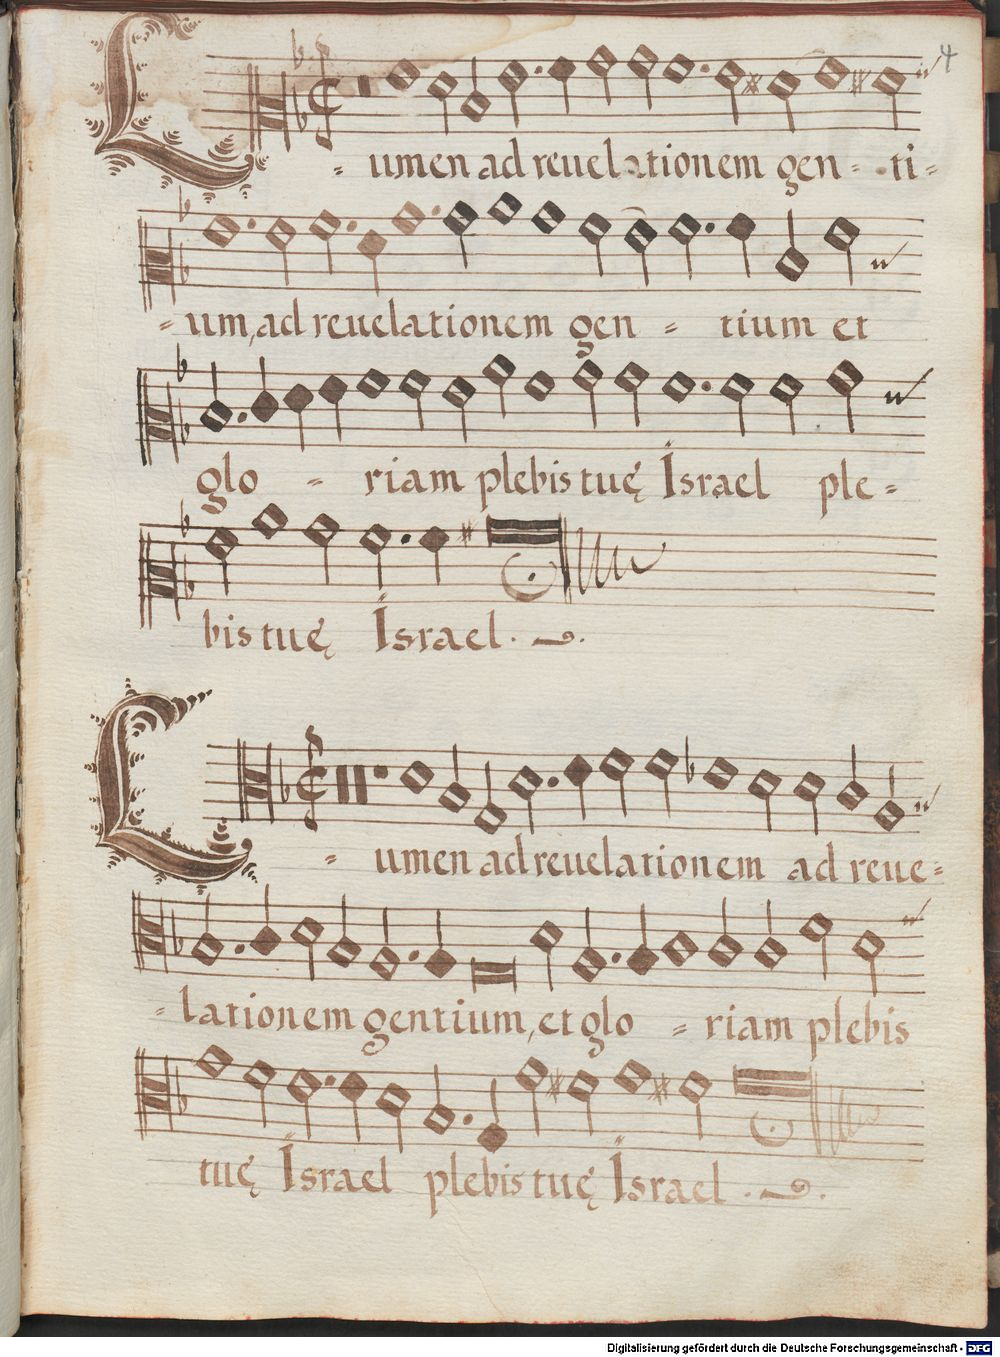 4
L - umen ad reuelationem gen - - ti -
- um, ad reuelationem gen - tium et
glo - riam plebis tuę Israel ple -
bis tuę Israel.
L - umen ad reuelationem ad reue -
- lationem gentium, et glo - riam plebis
tuę Israel plebis tuę Israel.
Digitalisierung gefördert durch die Deutsche Forschungsgemeinschaft - DFG